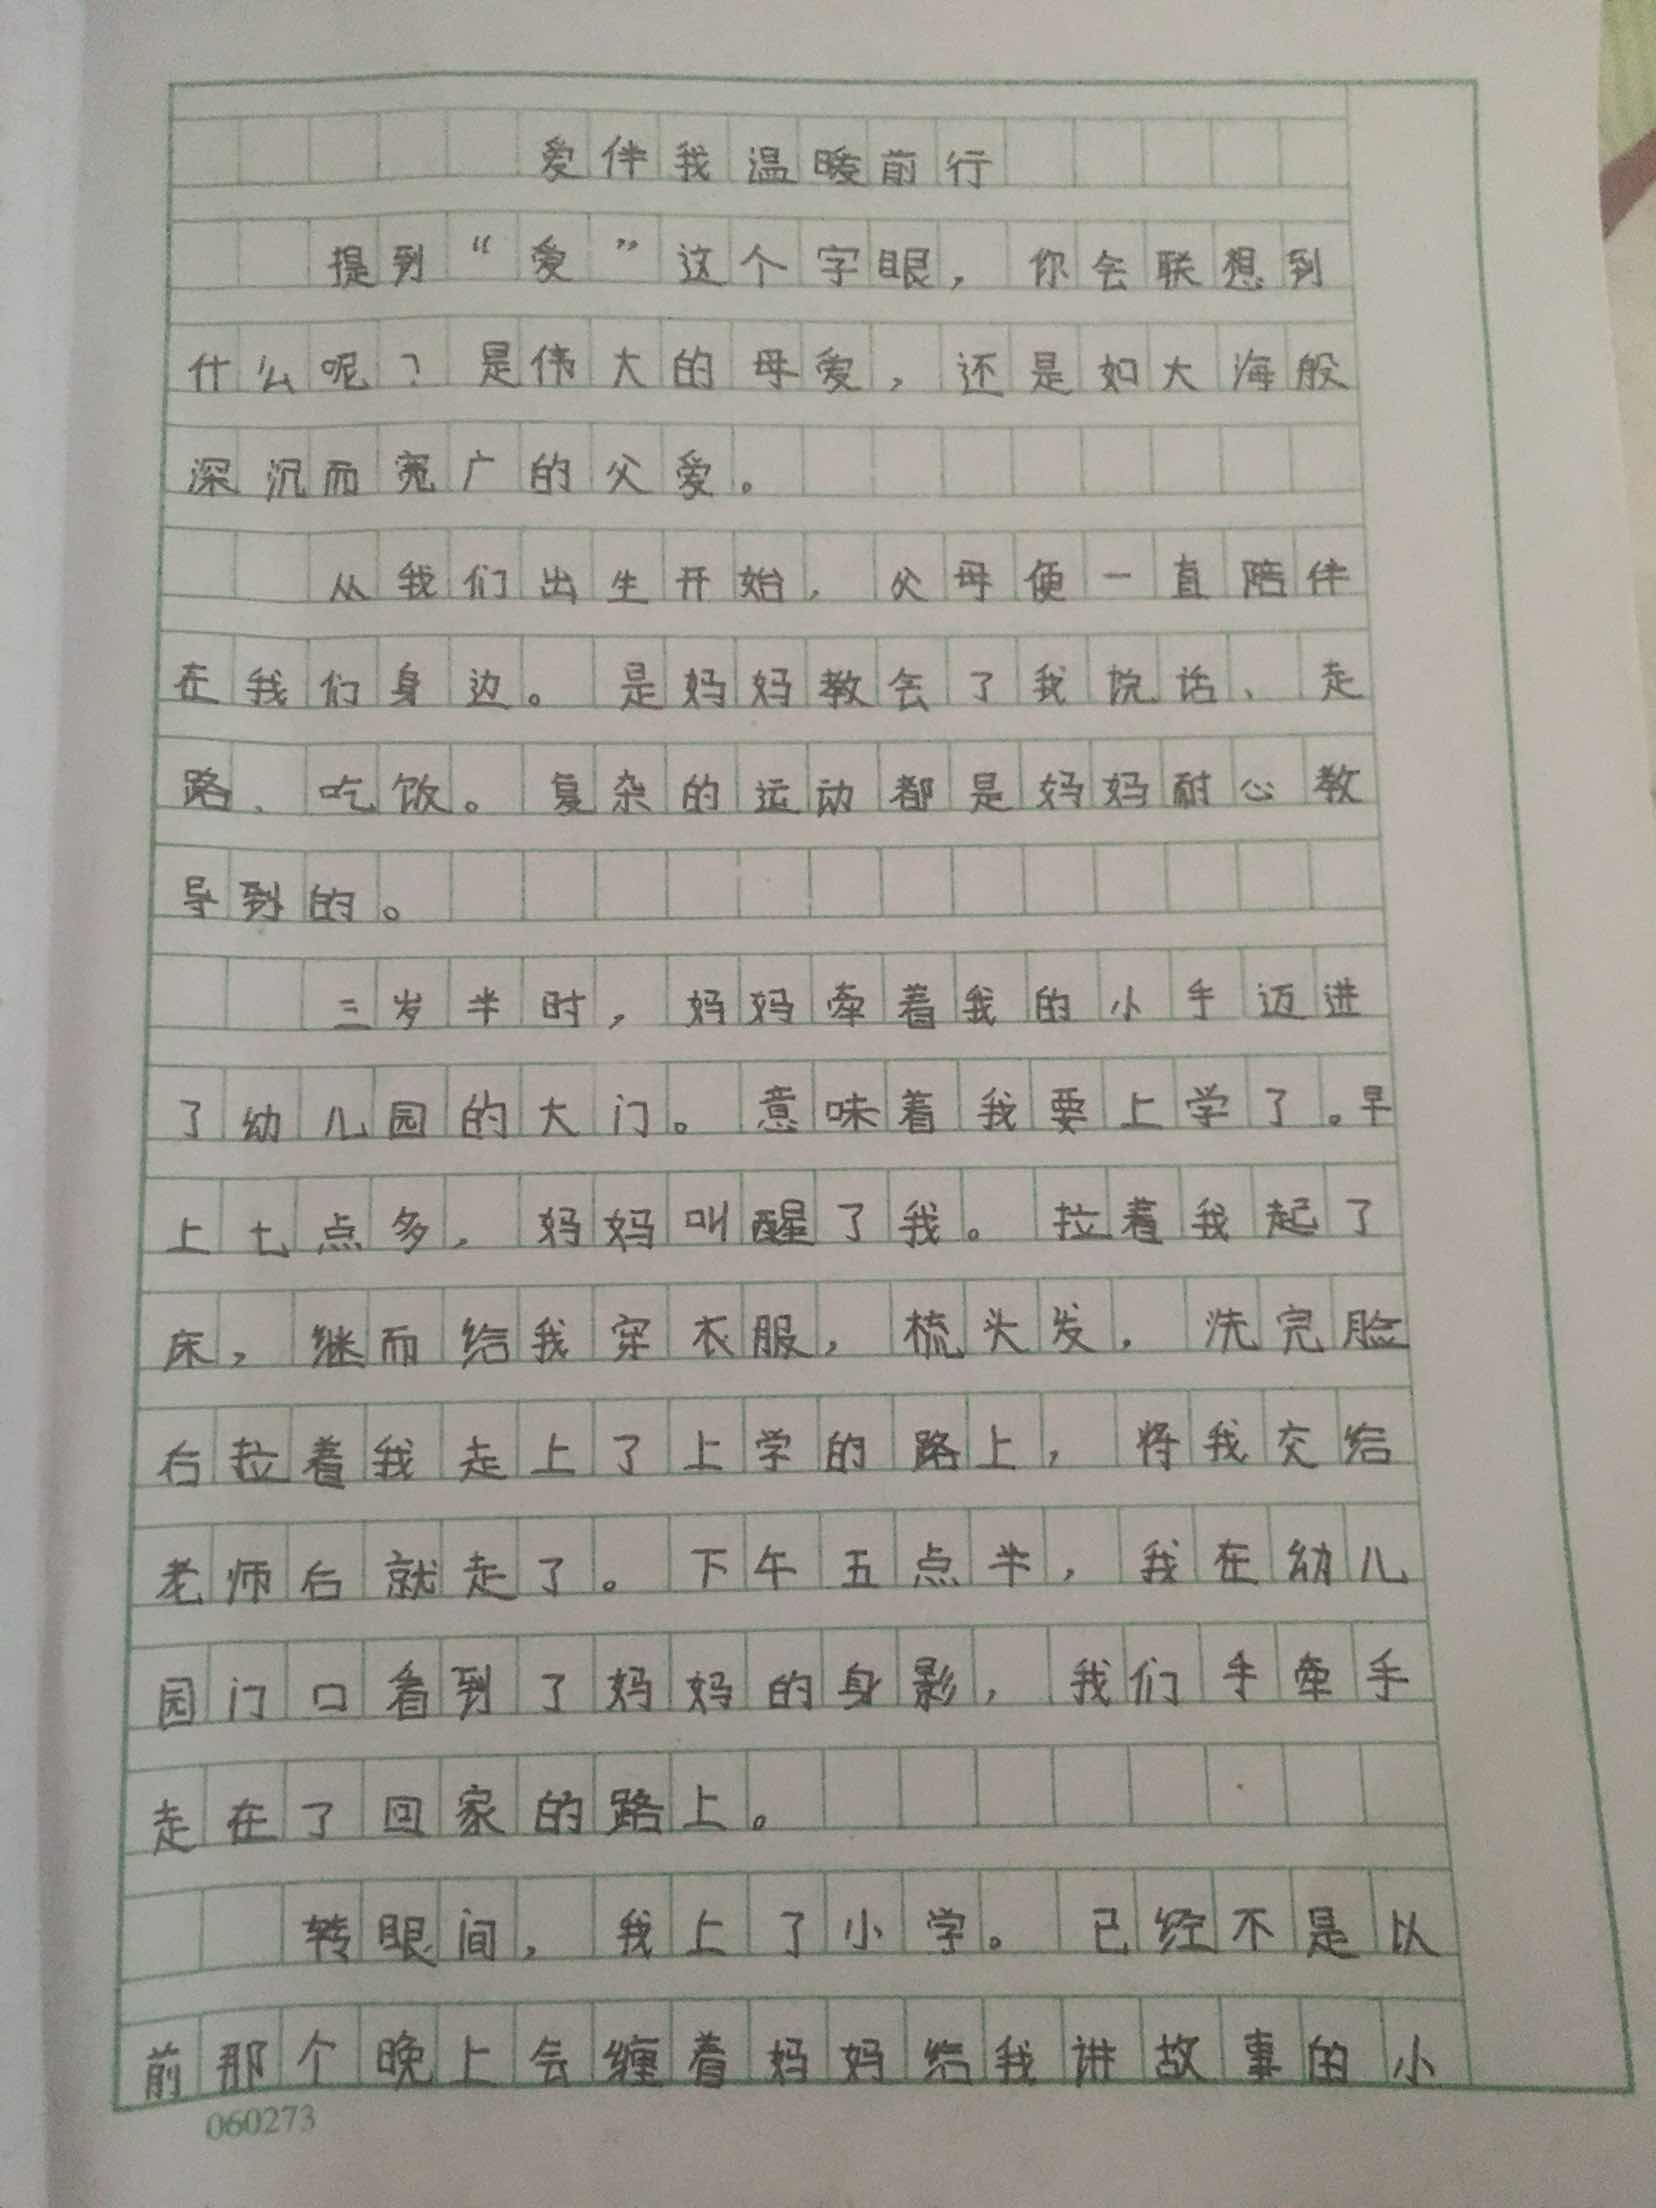 爱伴我温暖前行
提到“爱”这个字眼，你会联想到
什么呢？是伟大的母爱，还是如大海般
深沉而宽广的父爱。
从我们出生开始，父母便一直陪伴
在我们身边。是妈妈教会了我说话、走
路、吃饭。复杂的运动都是妈妈耐心教
导到的。
三岁半时，妈妈牵着我的小手迈进
了幼儿园的大门。意味着我要上学了。早
上七点多，妈妈叫醒了我。拉着我起了
床，继而给我穿衣服，梳头发，洗完脸
后拉着我走上了上学的路上，将我交给
老师后就走了。下午五点半，我在幼儿
园门口看到了妈妈的身影，我们手牵手
走在了回家的路上。
转眼间，我上了小学。已经不是以
前那个晚上会缠着妈妈给我讲故事的小
060273